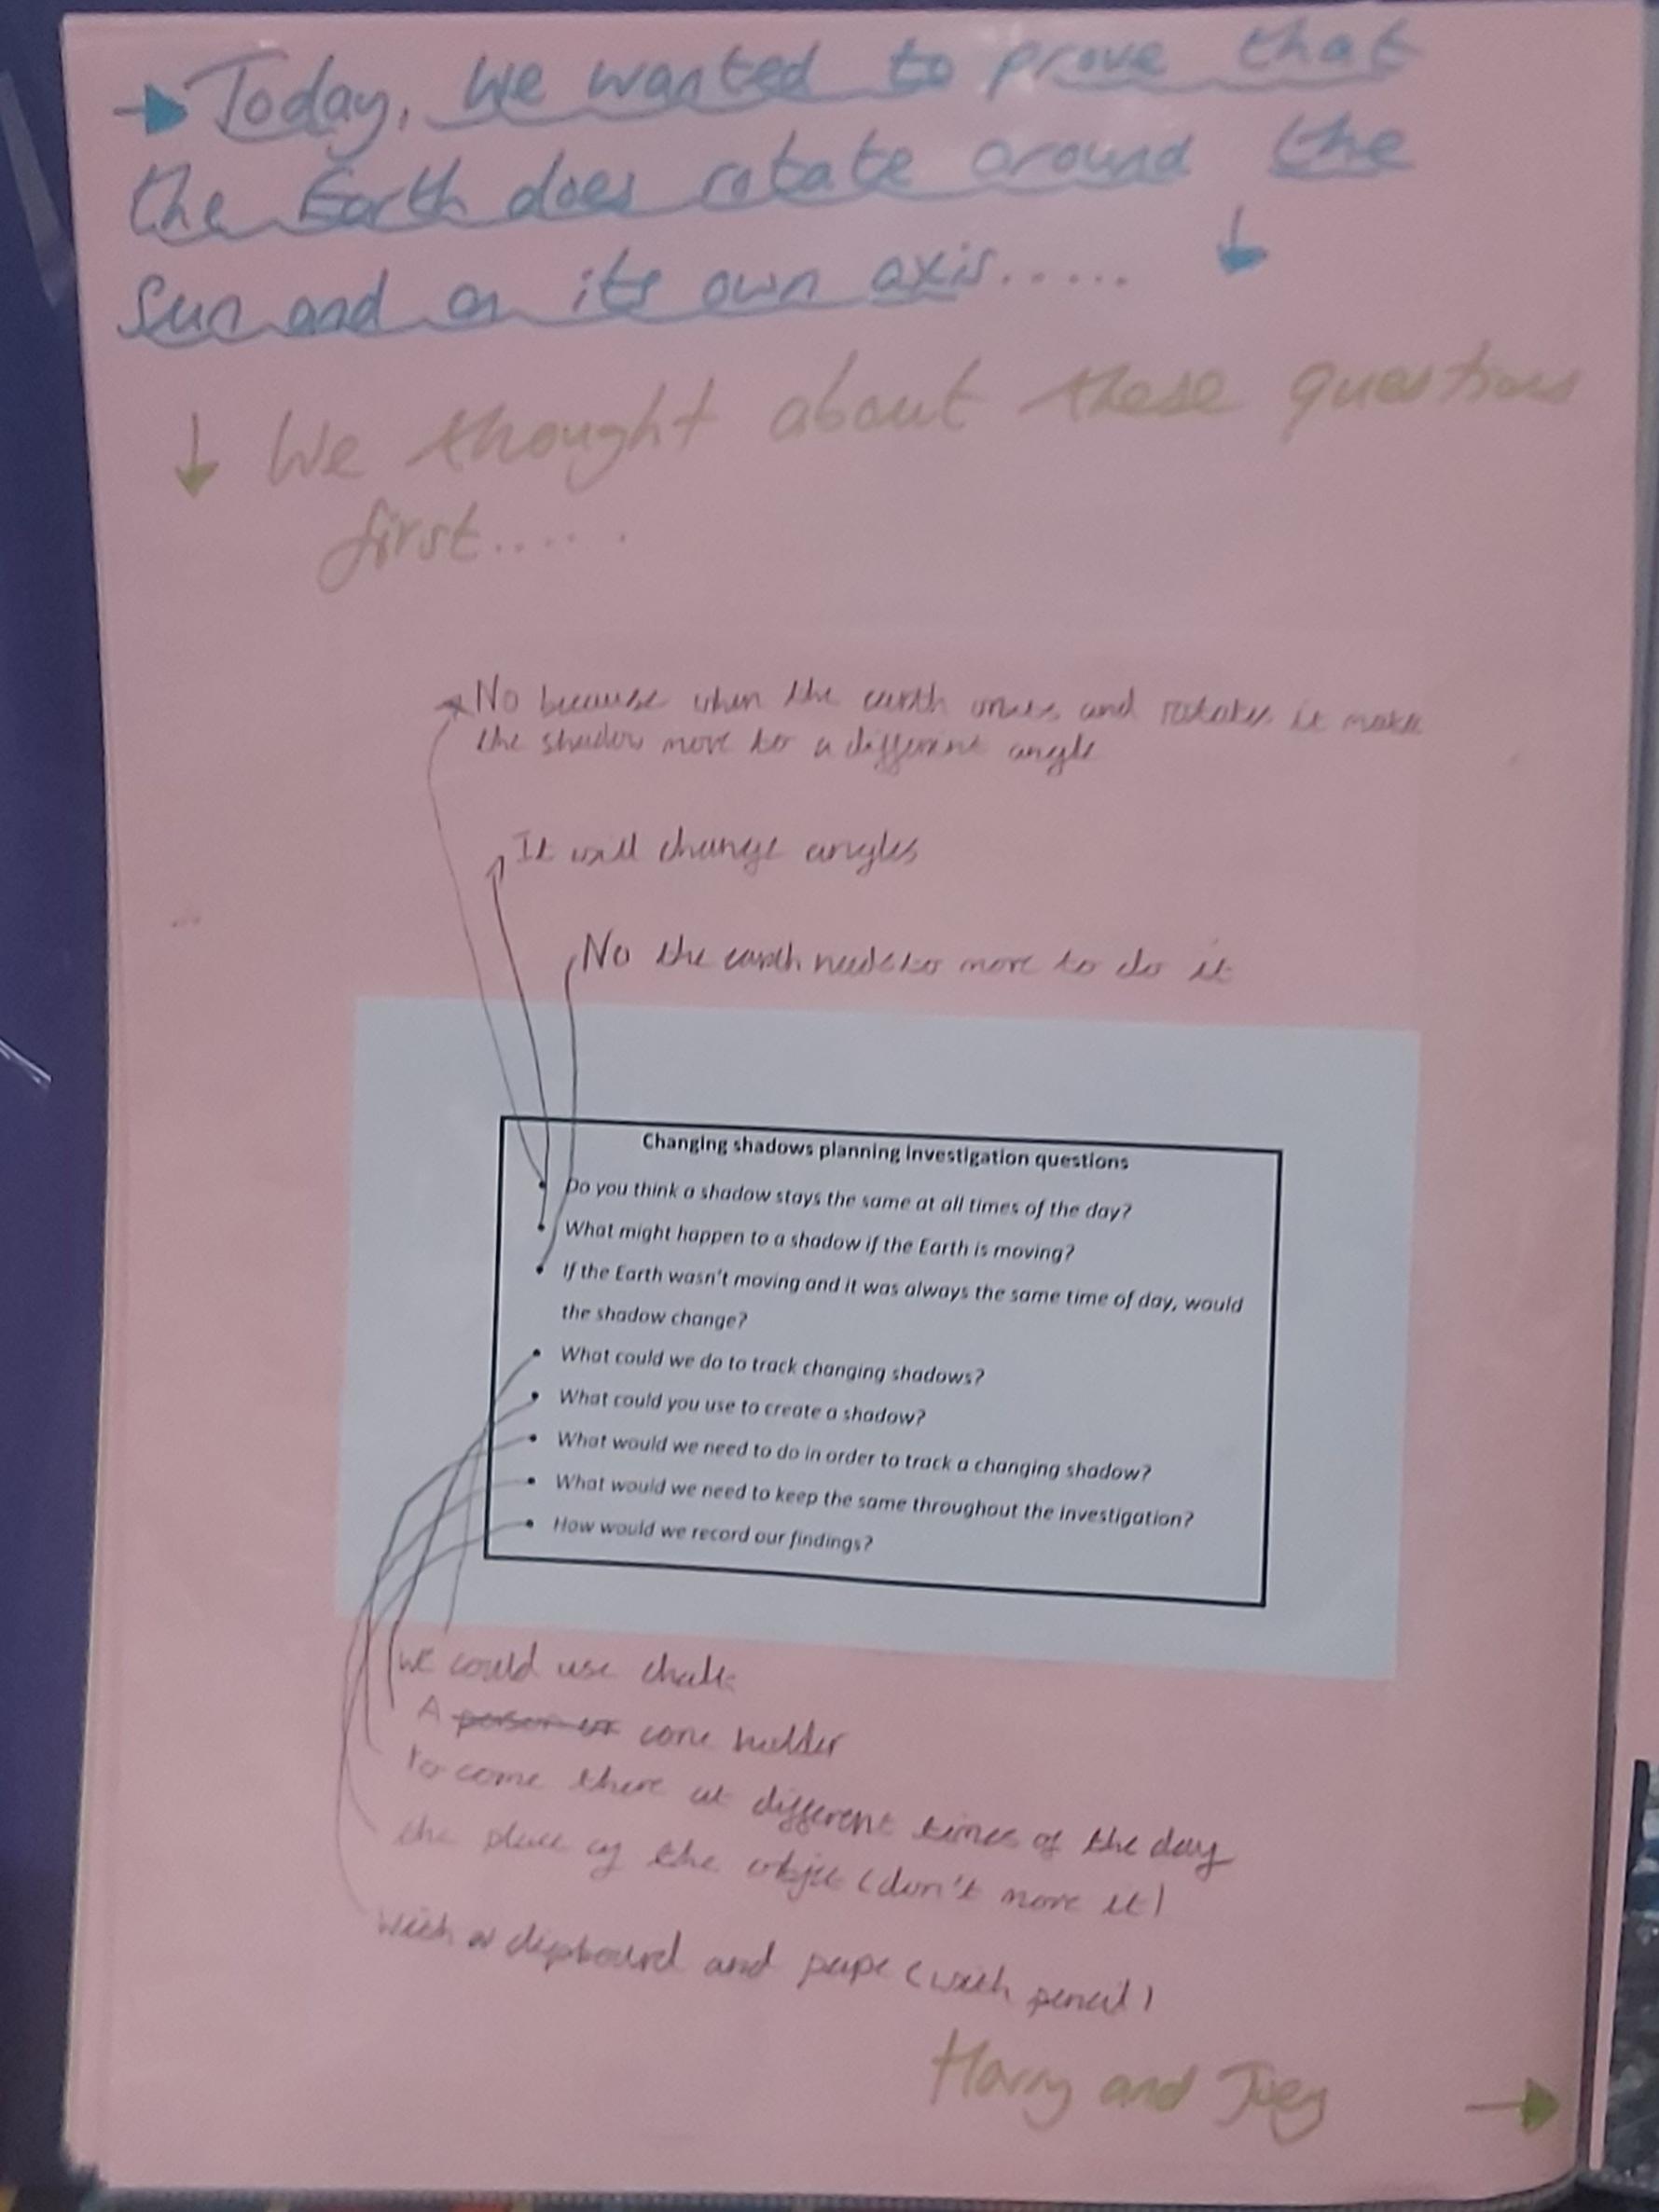 Today, we wanted to prove that
the Earth does rotate around the
Sun and on its own axis......
We thought about these questions
first......
No because when the earth and rotates it make
the shadow move to a different angle
It will change angles
No the earth needs to move to do it
Changing shadows planning investigation questions
• Do you think a shadow stays the same at all times of the day?
• What might happen to a shadow if the Earth is moving?
• If the Earth wasn't moving and it was always the same time of day, would
the shadow change?
• What could we do to track changing shadows?
• What could you use to create a shadow?
• What would we need to do in order to track a changing shadow?
• What would we need to keep the same throughout the investigation?
• How would we record our findings?
we could use chalk
A person or cone holder
To come there at different times of the day
the place of the objec (don't move it)
With a clipboard and pape (with pencil)
Harry and Joey